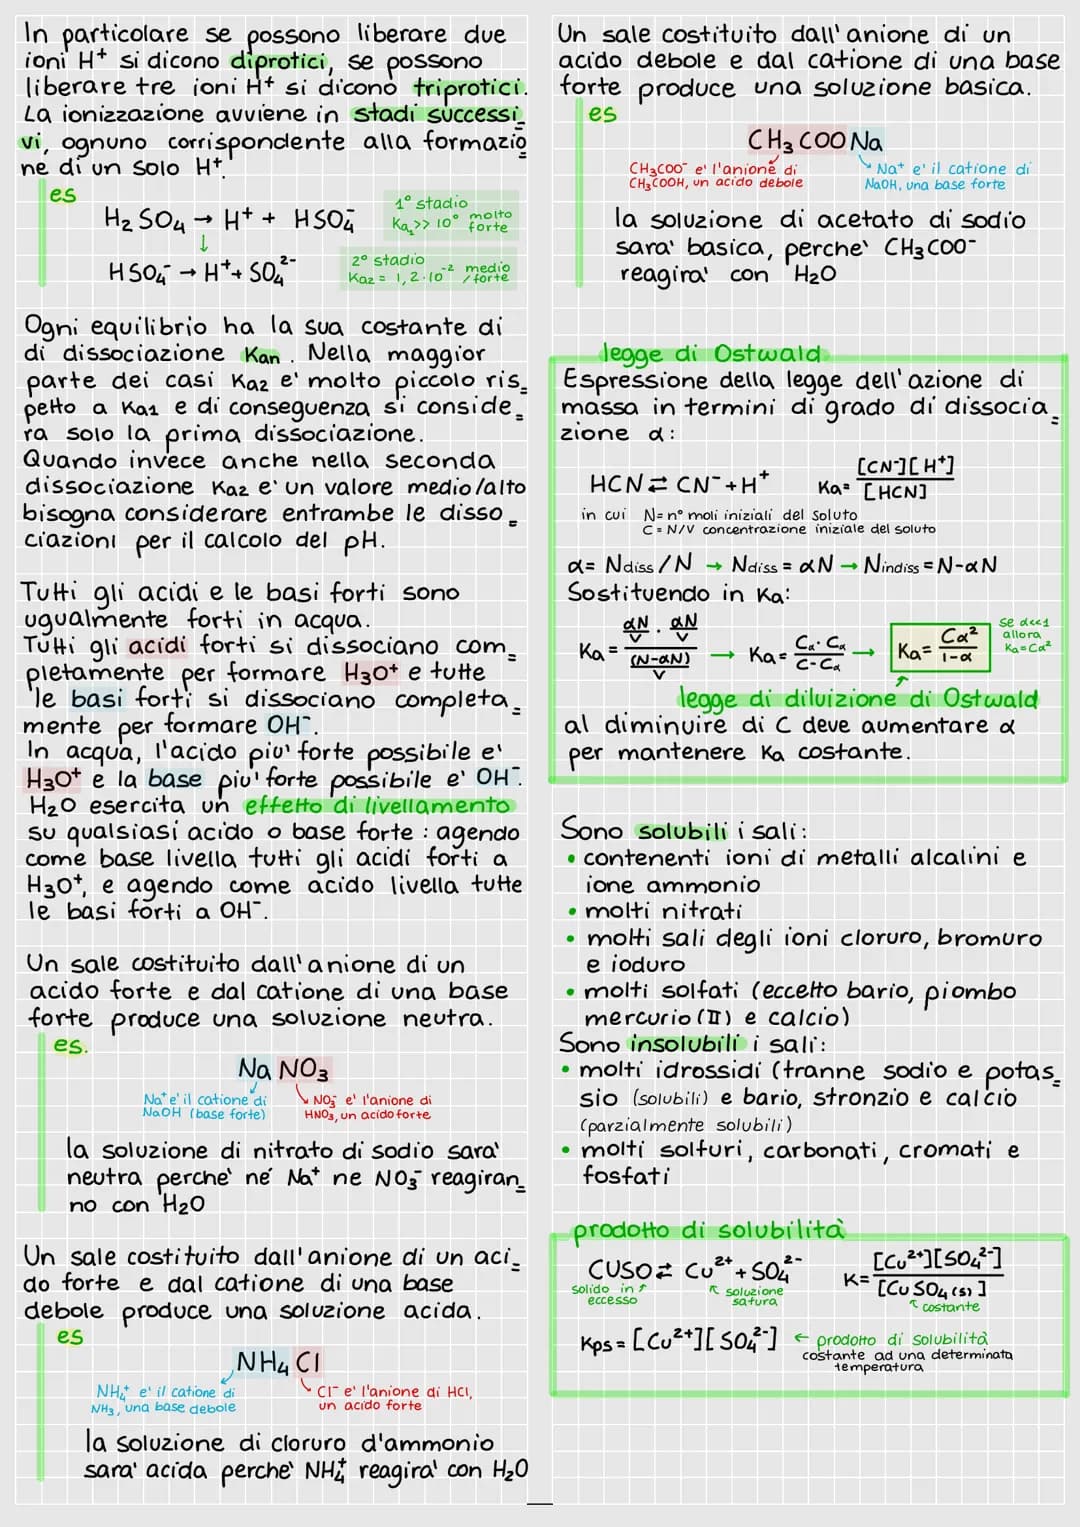 In particolare se possono liberare due
ioni H⁺ si dicono diprotici, se possono
liberare tre ioni H⁺ si dicono triprotici.
La ionizzazione avviene in stadi successi_
vi, ognuno corrispondente alla formazio_
ne di un solo H⁺.
es
H₂SO₄ → H⁺ + HSO₄⁻
1° stadio
Ka₁ >> 10° molto forte
↓
HSO₄⁻ → H⁺ + SO₄²⁻
2° stadio
Ka₂ = 1,2·10⁻² medio/forte
Ogni equilibrio ha la sua costante di
di dissociazione Kan. Nella maggior
parte dei casi Ka₂ e' molto piccolo ris_
petto a Ka₁ e di conseguenza si conside_
ra solo la prima dissociazione.
Quando invece anche nella seconda
dissociazione Ka₂ e' un valore medio/alto
bisogna considerare entrambe le disso_
ciazioni per il calcolo del pH.
Tutti gli acidi e le basi forti sono
ugualmente forti in acqua.
Tutti gli acidi forti si dissociano com_
pletamente per formare H₃O⁺ e tutte
le basi forti si dissociano completa_
mente per formare OH⁻.
In acqua, l'acido piu' forte possibile e'
H₃O⁺ e la base piu' forte possibile e' OH⁻.
H₂O esercita un effetto di livellamento
su qualsiasi acido o base forte : agendo
come base livella tutti gli acidi forti a
H₃O⁺, e agendo come acido livella tutte
le basi forti a OH⁻.
Un sale costituito dall'anione di un
acido forte e dal catione di una base
forte produce una soluzione neutra.
es.
Na NO₃
Na⁺ e' il catione di
NaOH (base forte)
NO₃⁻ e' l'anione di
HNO₃, un acido forte
la soluzione di nitrato di sodio sara'
neutra perche' né Na⁺ ne NO₃⁻ reagiran_
no con H₂O
Un sale costituito dall'anione di un aci_
do forte e dal catione di una base
debole produce una soluzione acida.
es
NH₄ Cl
NH₄⁺ e' il catione di
NH₃, una base debole
Cl⁻ e' l'anione di HCl,
un acido forte
la soluzione di cloruro d'ammonio
sara' acida perche' NH₄⁺ reagira' con H₂O
Un sale costituito dall'anione di un
acido debole e dal catione di una base
forte produce una soluzione basica.
es
CH₃COO Na
CH₃COO⁻ e' l'anione di
CH₃COOH, un acido debole
Na⁺ e' il catione di
NaOH, una base forte
la soluzione di acetato di sodio
sara' basica, perche' CH₃COO⁻
reagira' con H₂O
legge di Ostwald
Espressione della legge dell'azione di
massa in termini di grado di dissocia_
zione α:
HCN ⇄ CN⁻ + H⁺
Ka = [CN⁻][H⁺] / [HCN]
in cui N = n° moli iniziali del soluto
C = N/V concentrazione iniziale del soluto
α = Ndiss/N → Ndiss = αN → Nindiss = N-αN
Sostituendo in Ka:
Ka = (αN/V · αN/V) / ((N-αN)/V) → Ka = Cα·Cα / C-Cα → Ka = Cα² / 1-α
se α<<1
allora
Ka=Cα²
legge di diluizione di Ostwald
al diminuire di C deve aumentare α
per mantenere Ka costante.
Sono solubili i sali:
• contenenti ioni di metalli alcalini e
ione ammonio
• molti nitrati
• molti sali degli ioni cloruro, bromuro
e ioduro
• molti solfati (eccetto bario, piombo
mercurio (II) e calcio)
Sono insolubili i sali:
• molti idrossidi (tranne sodio e potas_
sio (solubili) e bario, stronzio e calcio
(parzialmente solubili)
• molti solfuri, carbonati, cromati e
fosfati
prodotto di solubilità
CUSO ⇄ Cu²⁺ + SO₄²⁻
K = [Cu²⁺][SO₄²⁻] / [CuSO₄(s)]
solido in
eccesso
soluzione
satura
costante
Kps = [Cu²⁺][SO₄²⁻] ← prodotto di solubilità
costante ad una determinata
temperatura